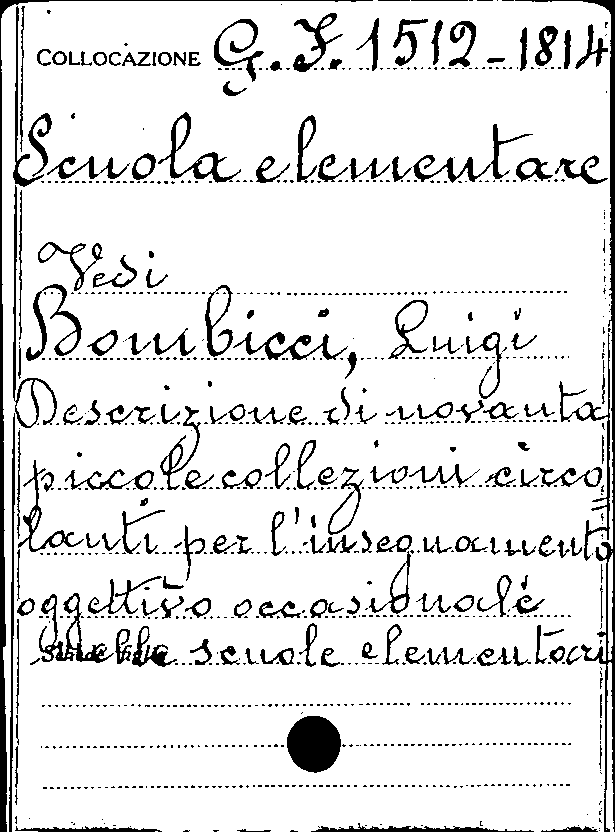 COLLOCAZIONE G. F. 1512-1814
Scuola elementare
Vedi
Bombicci, Luigi
Descrizione di novanta
piccole collezioni circo
lanti per l'insegnamento
oggettivo occasionale
nelle scuole elementari